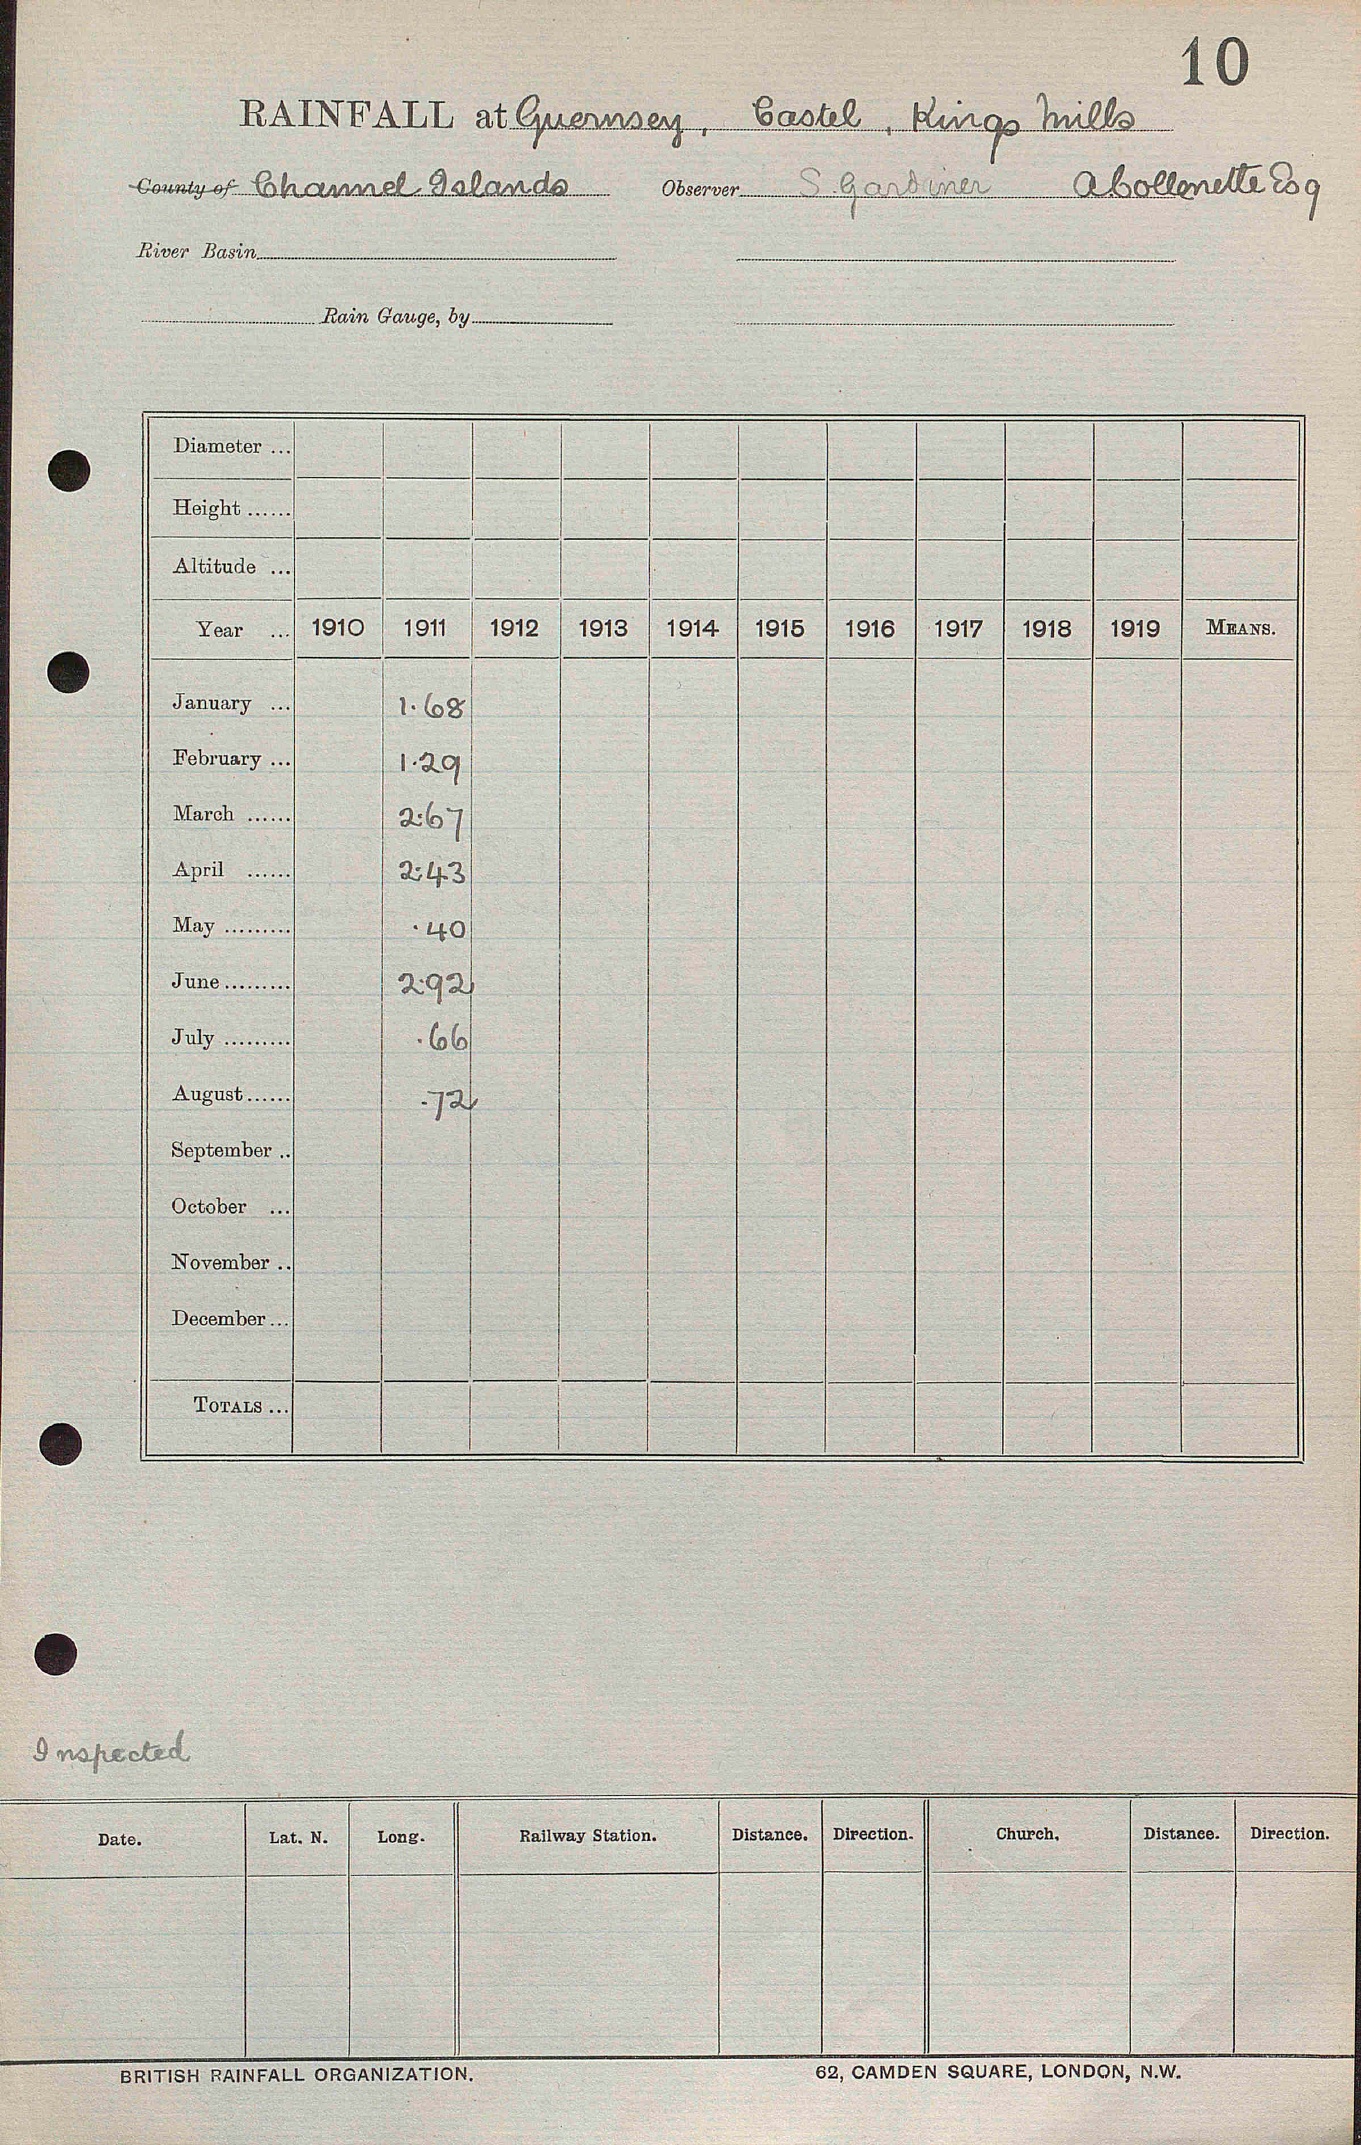 10
RAINFALL at Guernsey, Castel, Kings Mills
County of Channel Islands Observer S. Gardiner A Collenette Esq
River Basin
Rain Gauge, by
Diameter ...
Height ......
Altitude ...
Year ... 1910 1911 1912 1913 1914 1915 1916 1917 1918 1919 MEANS.
January ... 1.68
February ... 1.29
March ...... 2.67
April ...... 2.43
May ......... .40
June ......... 2.92
July ......... .66
August ...... .72
September ..
October ...
November ..
December ...
TOTALS ...
Inspected
Date. Lat. N. Long. Railway Station. Distance. Direction. Church. Distance. Direction.
BRITISH RAINFALL ORGANIZATION. 62, CAMDEN SQUARE, LONDON, N.W.